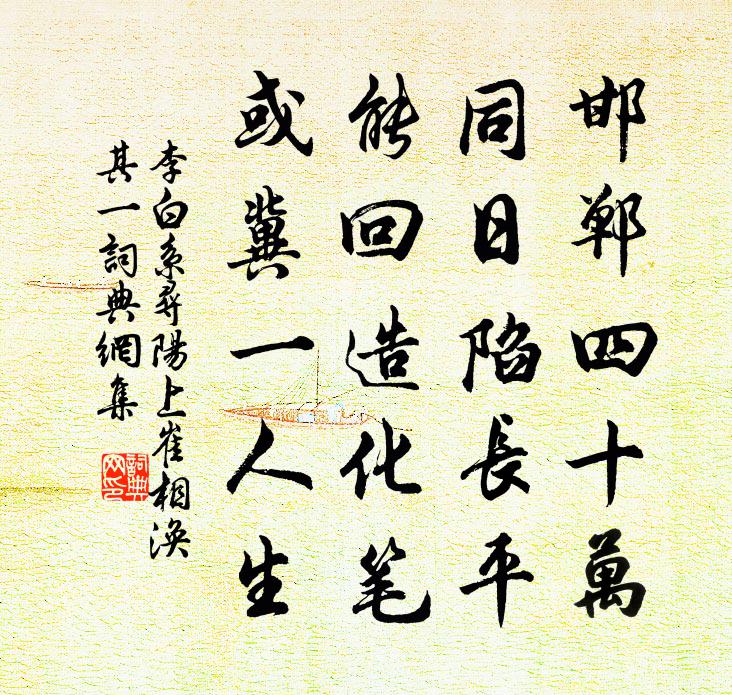 邯鄲四十萬
同日陷長平
能回造化笔
或冀一人生
李白系尋陽上崔相渙
其一詞典網集
詞典
网印